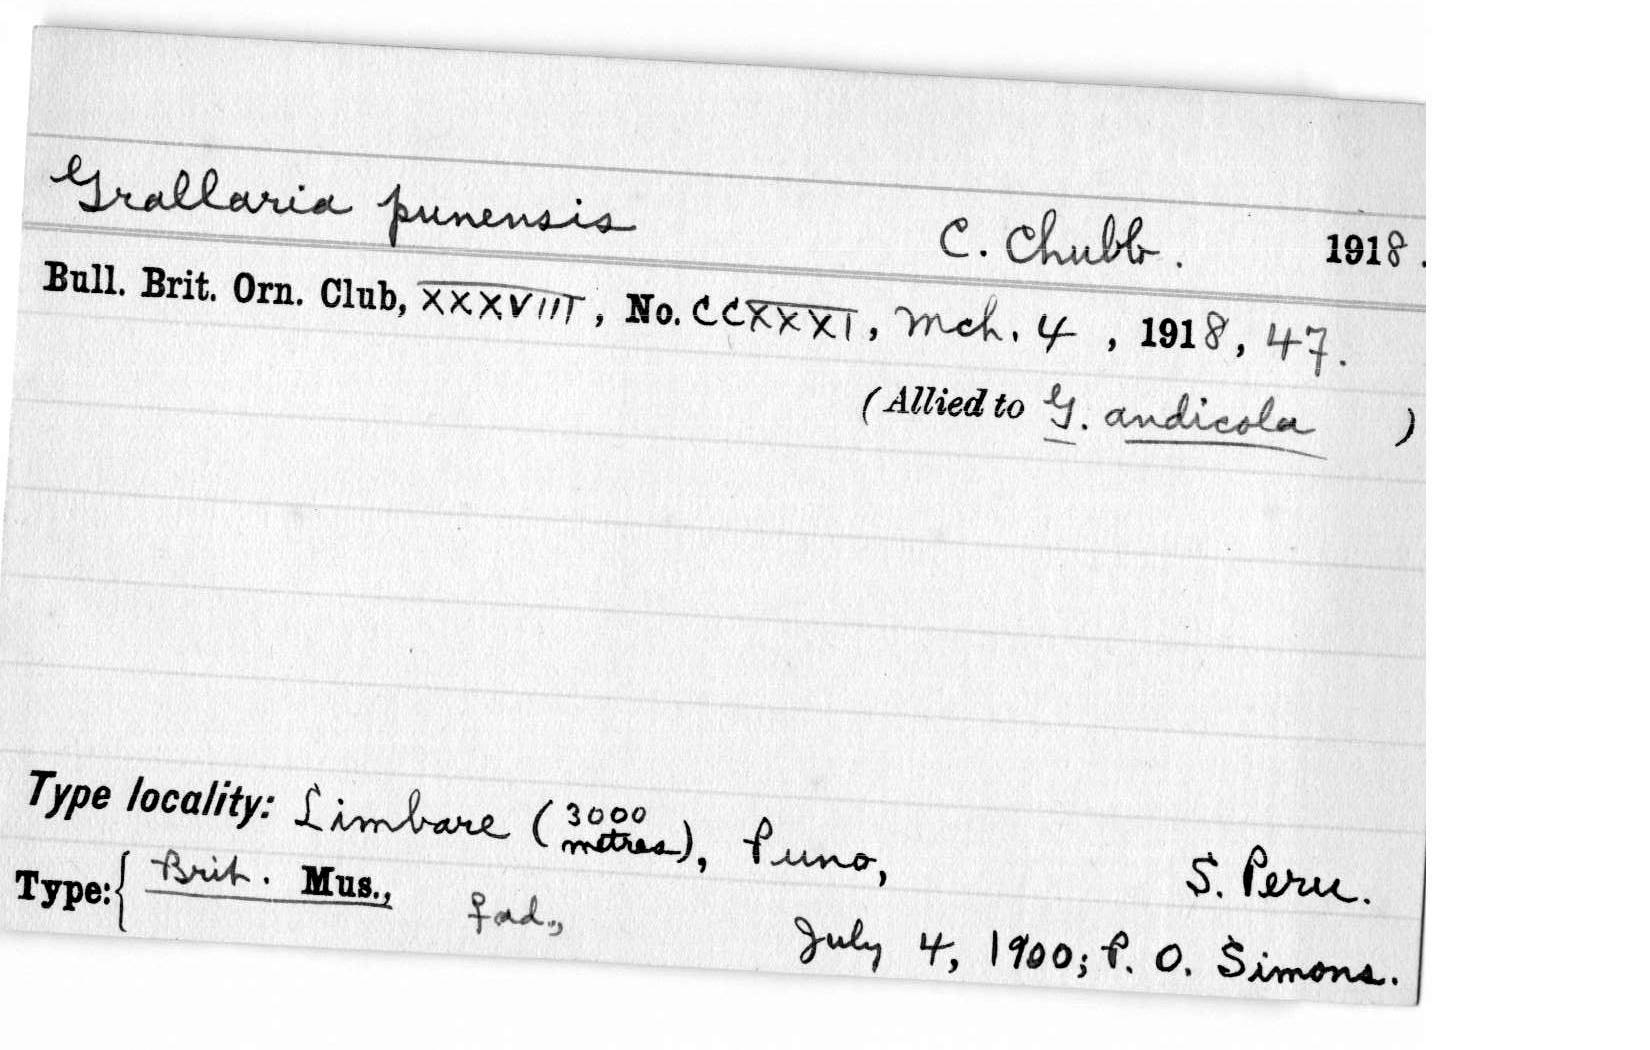 Grallaria punensis C. Chubb. 1918.
Bull. Brit. Orn. Club, XXXVIII, No. CCXXXI, Mch. 4, 1918, 47.
(Allied to G. andicola)
Type locality: Limbare (3000 metres), Puno, S. Peru.
Type: { Brit. Mus., ♀ ad., July 4, 1900; P. O. Simons.